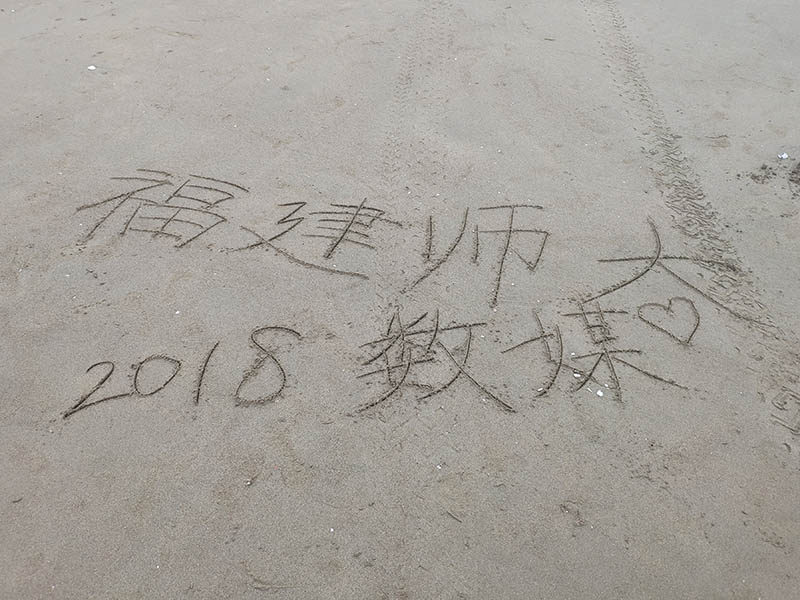 福建师大
2018 数媒♡